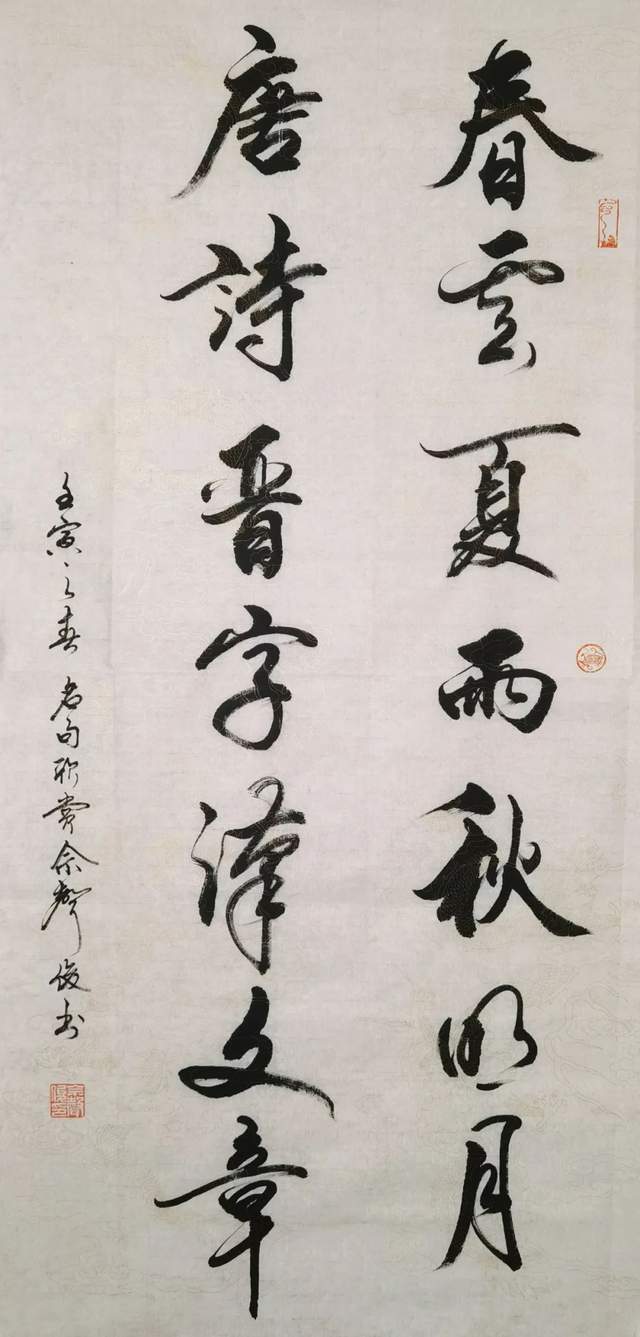 春雲夏雨秋明月
唐詩晉字漢文章
壬寅之春 名句欣賞 余聲俊书